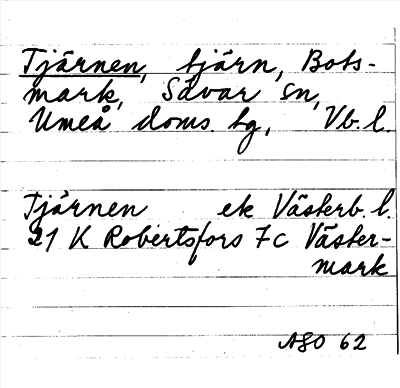 Tjärnen, tjärn, Bots-
mark, Sävar sn,
Umeå doms. tg, Vb. l.
Tjärnen ek Västerb. l.
21 K Robertsfors 7c Väster-
mark
ASO 62